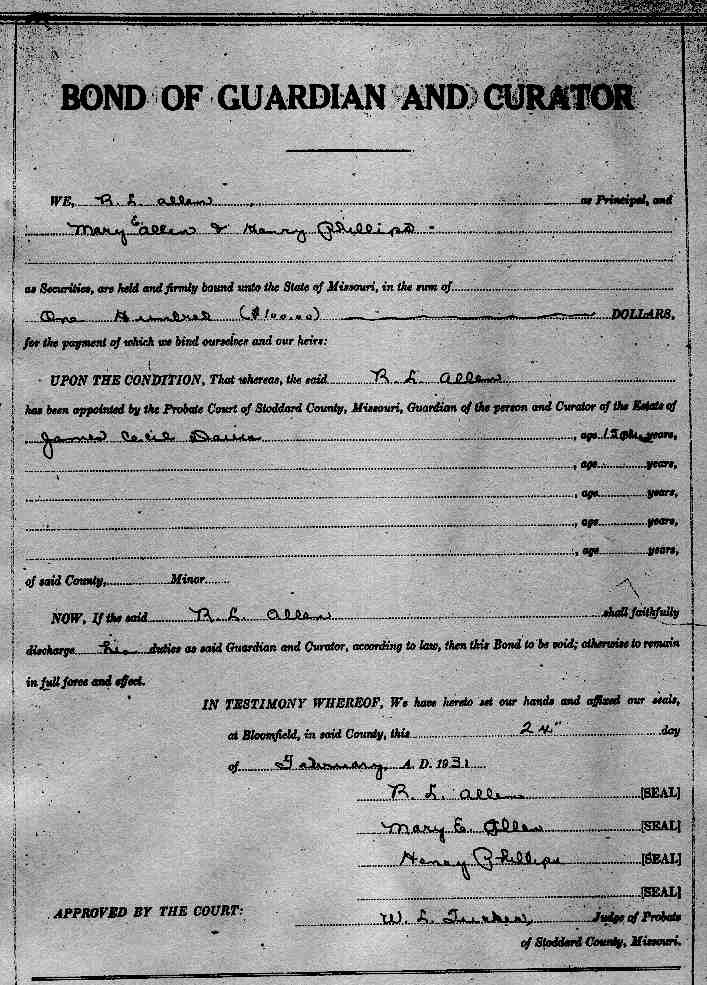 BOND OF GUARDIAN AND CURATOR
WE, R. L. Allen, as Principal, and
Mary E Allen & Henry Phillips -
as Securities, are held and firmly bound unto the State of Missouri, in the sum of
One Hundred ($100.00) DOLLARS,
for the payment of which we bind ourselves and our heirs:
UPON THE CONDITION, That whereas, the said R. L. Allen
has been appointed by the Probate Court of Stoddard County, Missouri, Guardian of the person and Curator of the Estate of
James Cecil Davis, age years,
, age years,
, age years,
, age years,
, age years,
of said County, Minor
NOW, If the said R. L. Allen shall faithfully
discharge his duties as said Guardian and Curator, according to law, then this Bond to be void; otherwise to remain
in full force and effect.
IN TESTIMONY WHEREOF, We have hereto set our hands and affixed our seals,
at Bloomfield, in said County, this 24" day
of February A. D. 1931
R. L. Allen [SEAL]
Mary E. Allen [SEAL]
Henry Phillips [SEAL]
[SEAL]
APPROVED BY THE COURT: W. L. Judge of Probate
of Stoddard County, Missouri.